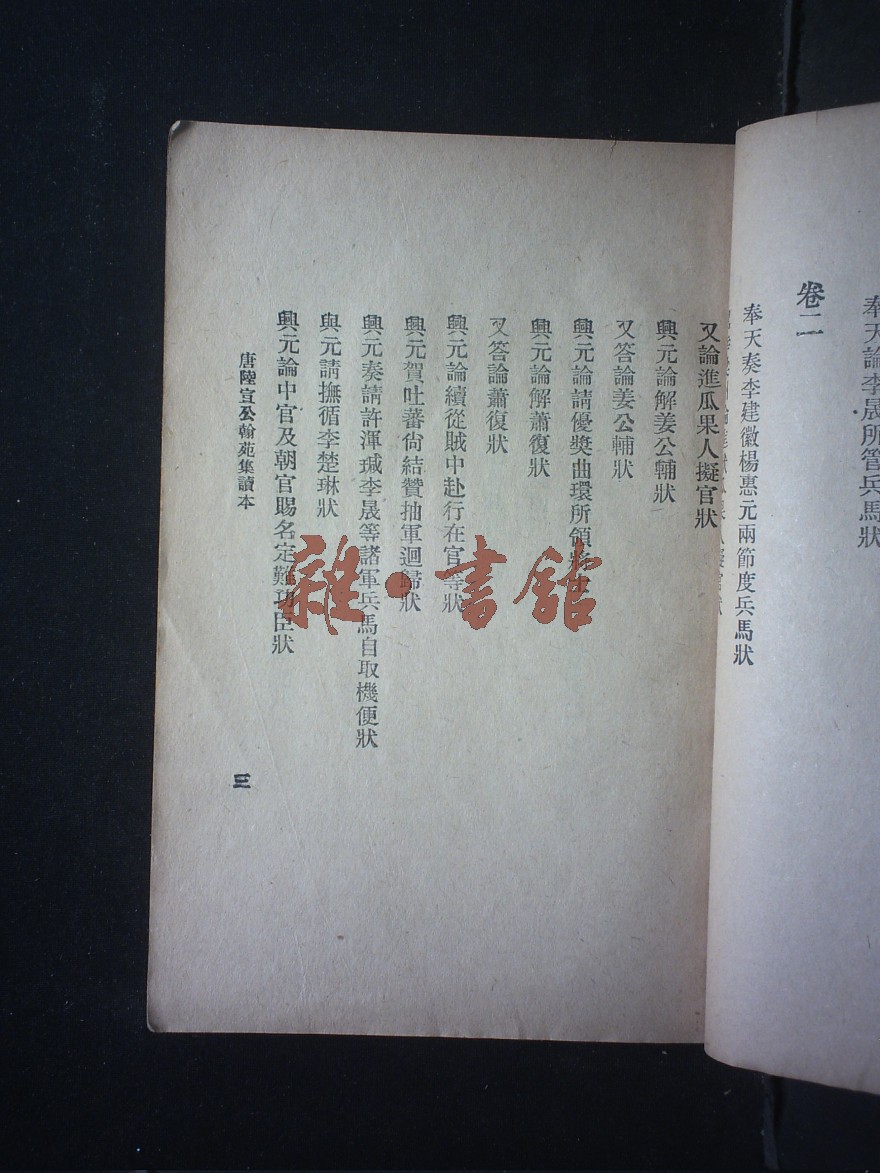 奉天論李晟所管兵馬狀
卷二
奉天奏李建徽楊惠元兩節度兵馬狀
又論進瓜果人擬官狀
興元論解姜公輔狀
又答論姜公輔狀
興元論請優獎曲環所領將
興元論解蕭復狀
又答論蕭復狀
興元論續從賊中赴行在官等狀
興元賀吐蕃尙結贊抽軍迴歸狀
興元奏請許渾瑊李晟等諸軍兵馬自取機便狀
興元請撫循李楚琳狀
興元論中官及朝官賜名定難功臣狀
唐陸宣公翰苑集讀本
三
雜·書館